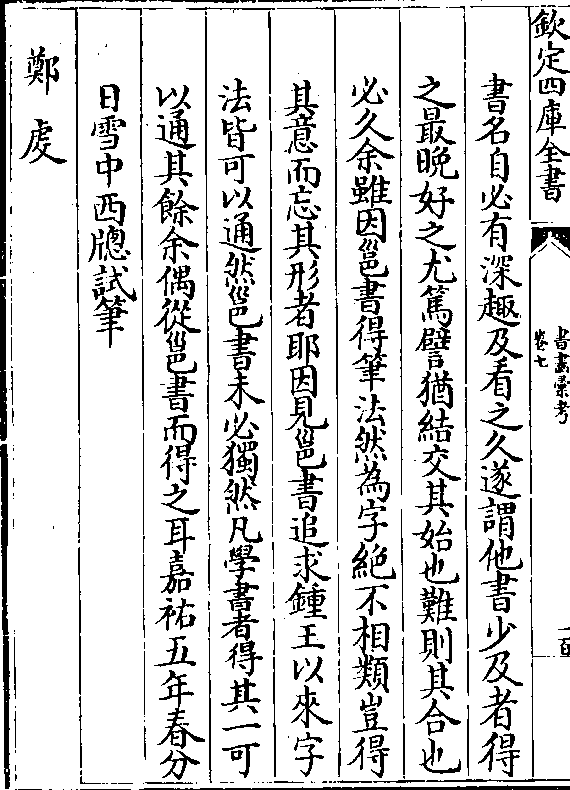 欽定四庫全書
書畫彙考
卷七
書名自必有深趣及看之久遂謂他書少及者得
之最晚好之尤篤譬猶結交其始也難則其合也
必久余雖因邕書得筆法然為字絶不相類豈得
其意而忘其形者耶因見邕書追求鍾王以來字
法皆可以通然邕書未必獨然凡學書者得其一可
以通其餘余偶從邕書而得之耳嘉祐五年春分
日雪中西牎試筆
鄭虔